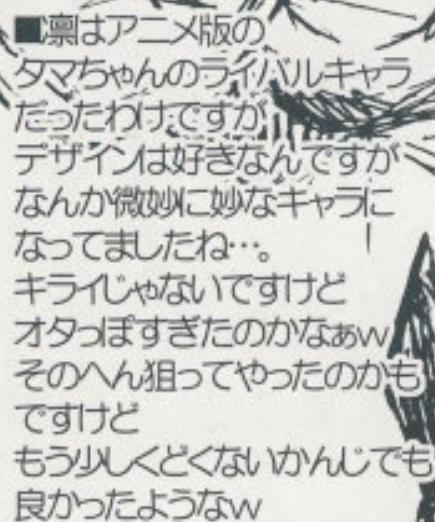 ■凛はアニメ版の
タマちゃんのライバルキャラ
だったわけですが
デザインは好きなんですが
なんか微妙に妙なキャラに
なってましたね…。
キライじゃないですけど
オタっぽすぎたのかなぁw
そのへん狙ってやったのかも
ですけど
もう少しくどくないかんじでも
良かったようなw